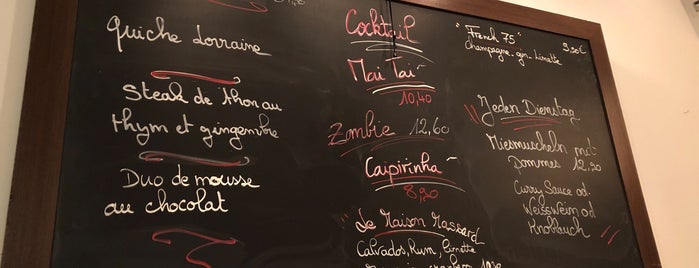 Quiche Lorraine
Steak de thon au
thym et gingembre
Duo de mousse
au chocolat
Cocktail
Mai Tai
10,40
Zombie 12,60
Caipirinha
8,20
"Le Maison Massard
Calvados, Rum, Limette
"French 75" 9,90€
champagne-gin-Limette
"Jeden Dienstag
Miesmuscheln mit
Pommes 12,90
Curry Sauce od.
Weisswein od
Knoblauch "